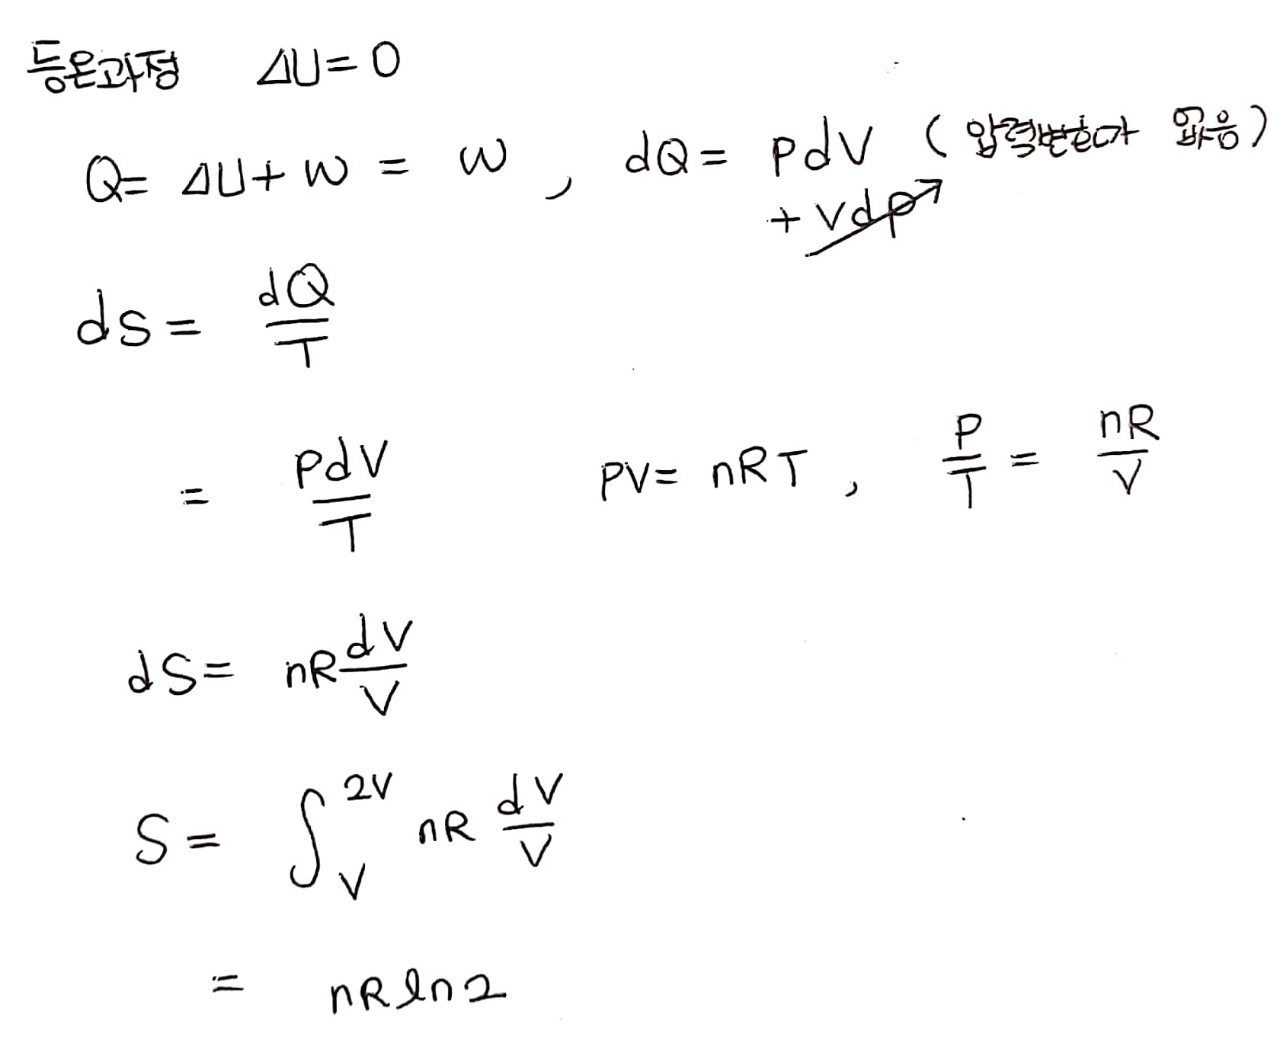 등온과정 ΔU=0
Q= ΔU+W = W , dQ= PdV (압력변화가 없음)
+ Vdp
dS= dQ/T
= PdV/T PV= nRT , P/T = nR/V
dS= nR dV/V
S= ∫_V^2V nR dV/V
= nR ln2